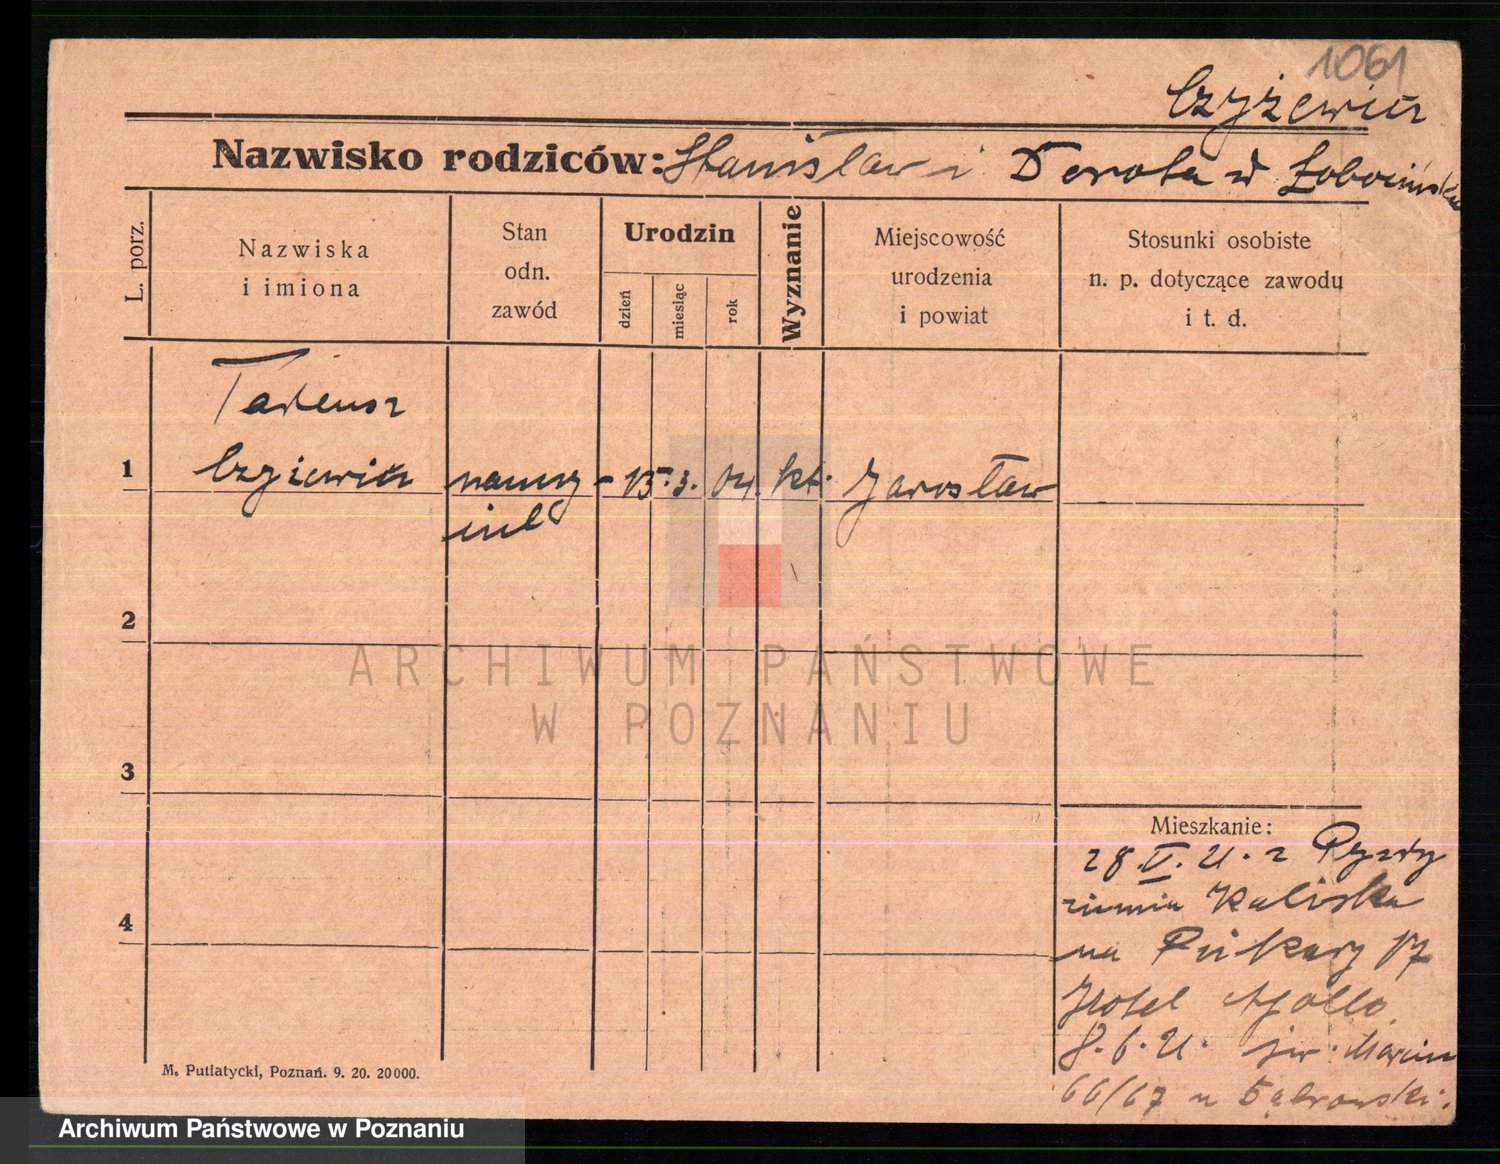 1061
Czyżewicz
Nazwisko rodziców: Stanisław i Dorota z d
L. porz.
Nazwiska
i imiona
Stan
odn.
zawód
Urodzin
dzień
miesiąc
rok
Wyznanie
Miejscowość
urodzenia
i powiat
Stosunki osobiste
n. p. dotyczące zawodu
i t. d.
Tadeusz
1 Czyżewicz nauczy- 15. 3. 04. kt. Jarosław
ciel
2
3
4
ARCHIWUM PAŃSTWOWE
W POZNANIU
Mieszkanie:
28. V. 21. z
ziemia Kaliska
na Piekary 17
Hotel Apollo.
8. 6. 21. św. Marcin
66/67 u Dąbrowski.
M. Putiatycki, Poznań. 9. 20. 20000.
Archiwum Państwowe w Poznaniu